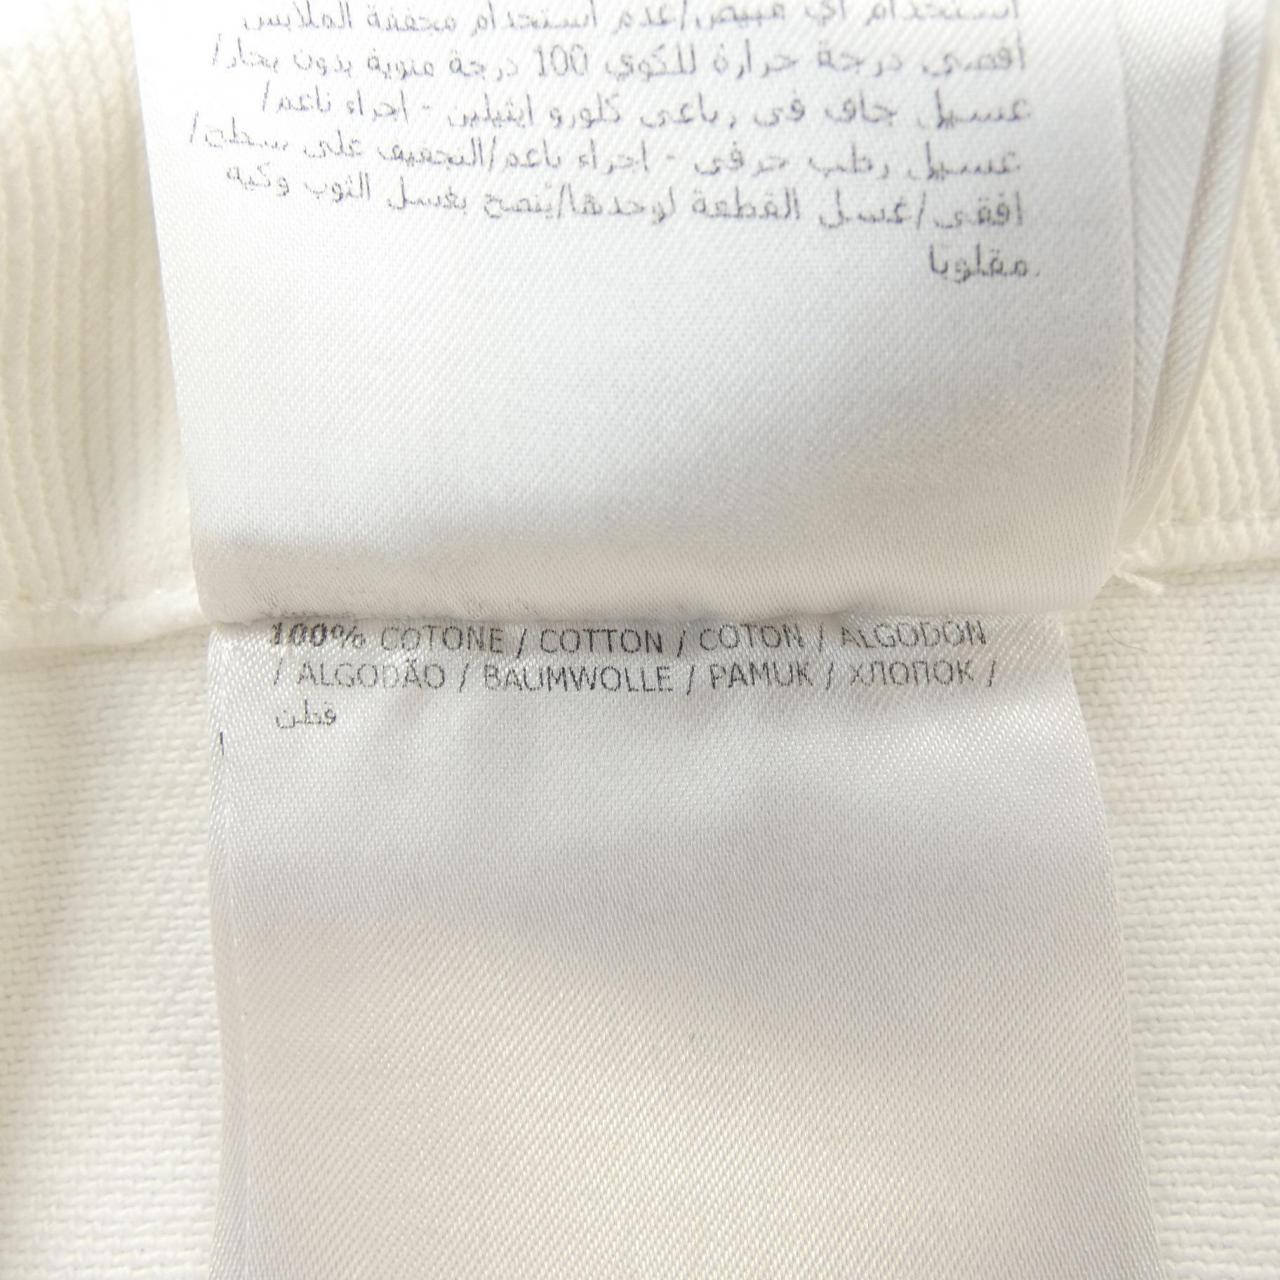 استخدام أي مبيض/عدم استخدام مجففة الملابس
أقصى درجة حرارة للكوي 100 درجة مئوية بدون بخار/
غسيل جاف في رباعي كلورو إيثيلين - إجراء ناعم/
غسيل رطب حرفي - إجراء ناعم/التجفيف على سطح/
أفقي/غسل القطعة لوحدها/يُنصح بغسل الثوب وكيه
مقلوبًا.
100% COTONE / COTTON / COTON / ALGODÓN
/ ALGODÃO / BAUMWOLLE / PAMUK / ХЛОПОК /
قطن